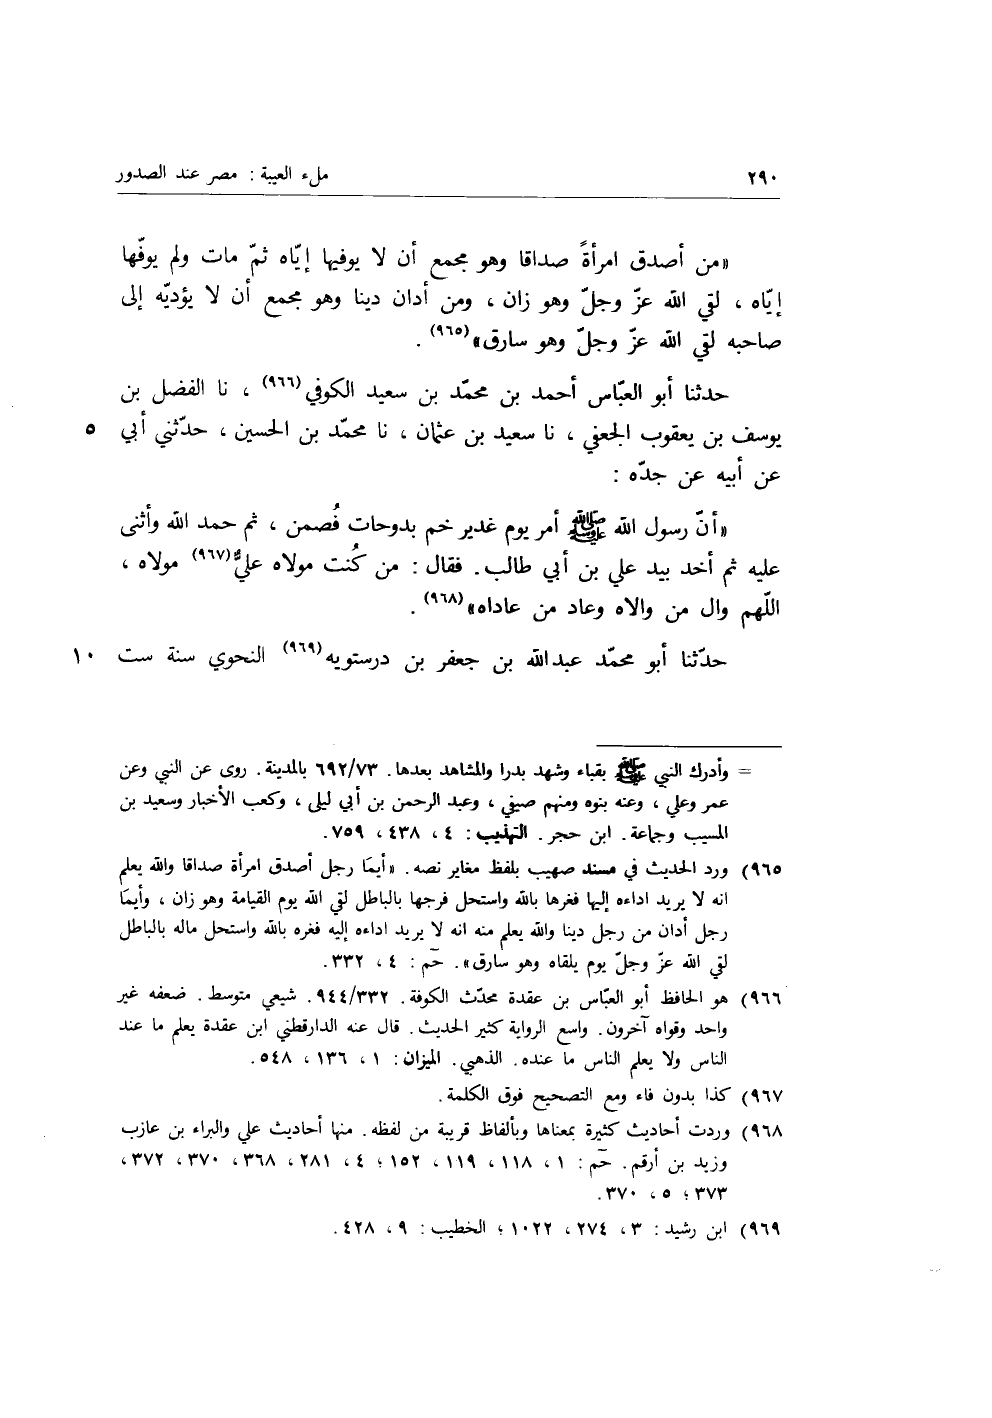 ٢٩٠ ملء العيبة : مصر عند الصدور
«من أصدق امرأةً صداقا وهو مجمع أن لا يوفيها إيّاه ثمّ مات ولم يوفّها
إيّاه ، لقي الله عزّ وجلّ وهو زان ، ومن أدان دينا وهو مجمع أن لا يؤديّه إلى
صاحبه لقي الله عزّ وجلّ وهو سارق»(٩٦٥) .
حدثنا أبو العبّاس أحمد بن محمّد بن سعيد الكوفي(٩٦٦) ، نا الفضل بن
يوسف بن يعقوب الجعفي ، نا سعيد بن عثمان ، نا محمّد بن الحسين ، حدّثني أبي ٥
عن أبيه عن جدّه :
«أنّ رسول الله ﷺ أمر يوم غدير خم بدوحات فُصمن ، ثم حمد الله وأثنى
عليه ثم أخد بيد علي بن أبي طالب. فقال : من كُنت مولاه عليٌّ(٩٦٧) مولاه ،
اللّهم وال من والاه وعاد من عاداه»(٩٦٨) .
حدّثنا أبو محمّد عبدالله بن جعفر بن درستويه(٩٦٩) النحوي سنة ست ١٠
= وأدرك النبي ﷺ بقباء وشهد بدرا والمشاهد بعدها. ٦٩٢/٧٣ بالمدينة. روى عن النبي وعن
عمر وعلي ، وعنه بنوه ومنهم صيفي ، وعبد الرحمن بن أبي ليلى ، وكعب الأخبار وسعيد بن
المسيب وجماعة. ابن حجر. التهذيب : ٤ ، ٤٣٨ ، ٧٥٩.
٩٦٥) ورد الحديث في مسند صهيب بلفظ مغاير نصه. «أيمَا رجل أصدق امرأة صداقا والله يعلم
انه لا يريد اداءه إليها فغرها بالله واستحل فرجها بالباطل لقي الله يوم القيامة وهو زان ، وأيمَا
رجل أدان من رجل دينا والله يعلم منه انه لا يريد اداءه إليه فغره بالله واستحل ماله بالباطل
لقي الله عزّ وجلّ يوم يلقاه وهو سارق». حَم : ٤ ، ٣٣٢.
٩٦٦) هو الحافظ أبو العبّاس بن عقدة محدّث الكوفة. ٩٤٤/٣٣٢. شيعي متوسط. ضعفه غير
واحد وقواه آخرون. واسع الرواية كثير الحديث. قال عنه الدارقطني ابن عقدة يعلم ما عند
الناس ولا يعلم الناس ما عنده. الذهبي. الميزان : ١ ، ١٣٦ ، ٥٤٨.
٩٦٧) كذا بدون فاء ومع التصحيح فوق الكلمة.
٩٦٨) وردت أحاديث كثيرة بمعناها وبألفاظ قريبة من لفظه. منها أحاديث علي والبراء بن عازب
وزيد بن أرقم. حَم : ١ ، ١١٨ ، ١١٩ ، ١٥٢ ؛ ٤ ، ٢٨١ ، ٣٦٨ ، ٣٧٠ ، ٣٧٢ ،
٣٧٣ ؛ ٥ ، ٣٧٠.
٩٦٩) ابن رشيد : ٣ ، ٢٧٤ ، ١٠٢٢ ؛ الخطيب : ٩ ، ٤٢٨.